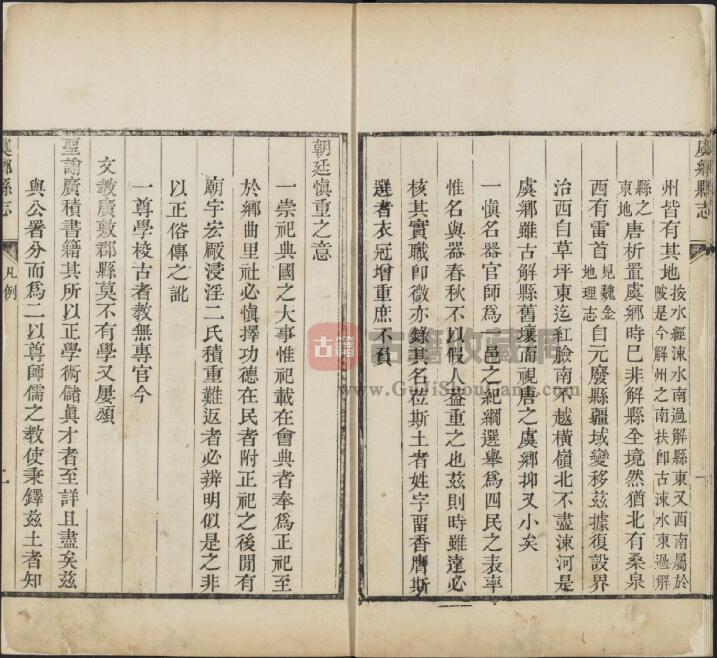 虞鄉縣志
州皆有其地按水經涑水南過解縣東又西南屬於
陂是今解州之南扶卽古涑水東過解
縣之東地唐析置虞鄉時已非解縣全境然猶北有桑泉
西有雷首見魏金地理志自元廢縣疆域變移茲據復設界
治西自草坪東迄紅臉南不越橫嶺北不盡涑河是
虞鄉雖古解縣舊壤而視唐之虞鄉抑又小矣
一慎名器官師爲一邑之紀綱選舉爲四民之表率
惟名與器春秋不以假人益重之也茲則時雖遠必
核其實職卽微亦錄其名莅斯土者姓字畱香膺斯
選者衣冠增重庶不負
朝廷慎重之意
一崇祀典國之大事惟祀載在會典者奉爲正祀至
於鄉曲里社必慎擇功德在民者附正祀之後閒有
廟宇宏厰浸淫二氏積重難返者必辨明似是之非
以正俗傳之訛
一尊學校古者敎無專官今
文敎廣敷郡縣莫不有學又屢頒
聖諭廣積書籍其所以正學術儲眞才者至詳且盡矣茲
與公署分而爲二以尊師儒之敎使秉鐸茲土者知
虞鄉縣志
凡例
二
古籍
古籍收藏網
www.GuJiShouCang.com